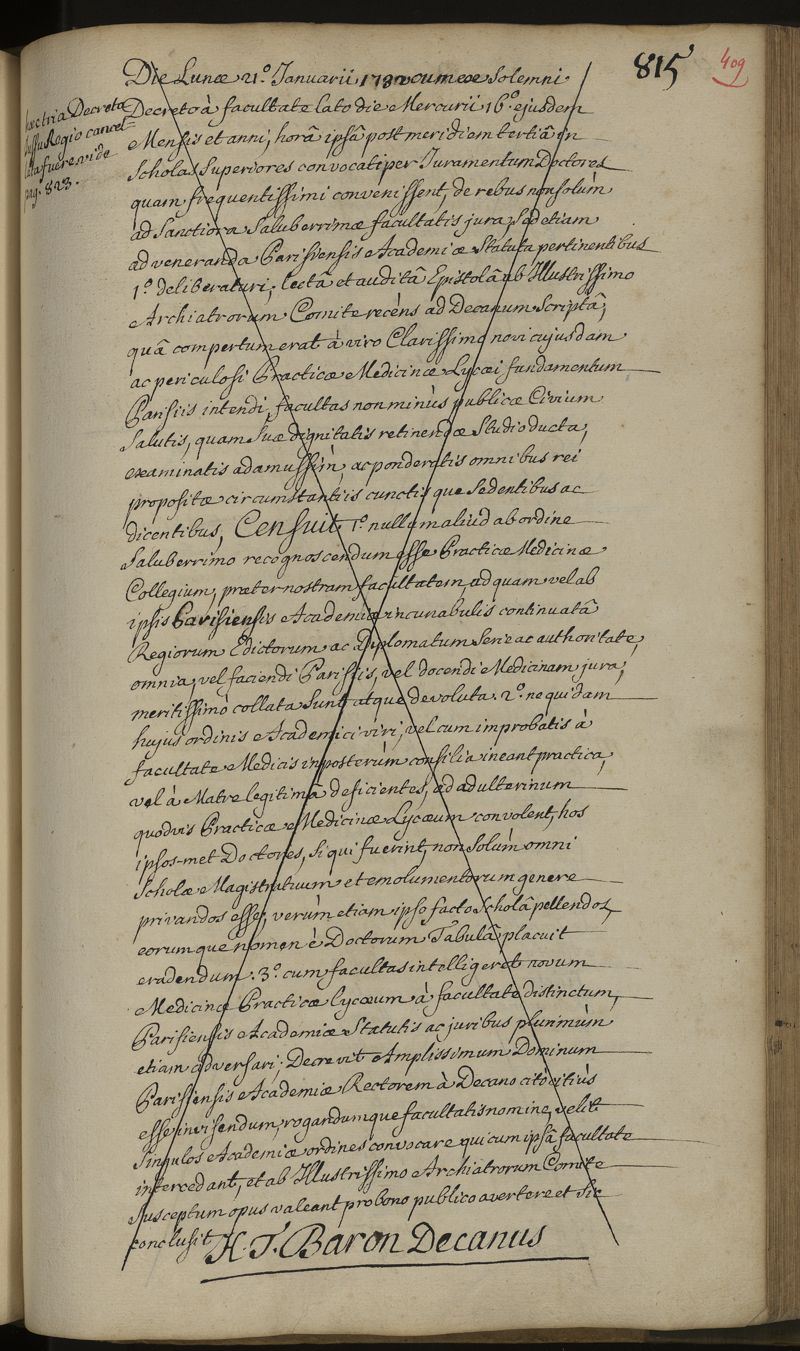 815
409
Die Lunæ 21.º Januarii 1732 cum ex Solemni
Decreto à facultate lato die Mercurii 16.º ejusdem
Mensis et anni, horâ ipsâ post meridiem tertiâ in
Scholas Superiores convocati per Juramentum Doctores
quam frequentissimi convenissent, de rebus non solùm
ad Sanctiora Saluberrimæ facultatis jura, Sed etiam
ad veneranda Parisiensis Academiæ Statuta pertinentibus
1.º deliberaturi; lectâ et auditâ Epistolâ ab Illustrissimo
Archiatrorum Comite recèns ad Decanum Scriptâ;
quâ compertum erat à viro Clarissimo novi cujusdam
ac periculosi Practicæ Medicinæ Lycæi fundamentum
Parisiis intendi, facultas non minùs publicæ Civium
Salutis, quam Suæ dignitatis retinendæ Studio ducta,
examinatis adamussim, ac ponderatis omnibus rei
propositæ circumstantiis cunctisque Sedentibus ac
dicentibus, Censuit 1.º nullum aliud ab ordine
Saluberrimo recognoscendum esse Practicæ Medicinæ
Collegium, præter nostram facultatem, ad quam vel ab
ipsis Parisiensis Academiæ incunabulis continuatâ
Regiorum Edictorum ac Diplomatum Serie ac authoritate,
omnia, vel faciendi Parisiis, vel docendi Medicinam jura,
meritissimò collata Sunt atque devoluta. 2.º ne quidam
hujus ordinis Academici viri, vel cum improbatis à
facultate Medicis in posterùm consilia ineant practica,
vel à Matre legitimâ deficientes, ad adulterinum
quodvis Practicæ Medicinæ Lycæum convolent, hos
ipsos-met Doctores, Si qui fuerint, non Solùm omni
Scholæ Magistratuum et emolumentorum genere
privandos esse, verùm etiam ipso facto Scholâ pellendos,
eorumque nomen è Doctorum Tabulâ placuit
eradendum. 3.º cum facultas intelligeret novum
Medicinæ Practicæ lycæum à facultate distinctum,
Parisiensis Academiæ Statutis ac juribus plurimùm
etiam adversari; Decrevit Amplissimum Dominum
Parisiensis Academiæ Rectorem à Decano citò citiùs
esse invisendum, rogandumque facultatis nomine, velit
Singulos Academiæ ordines convocare qui cum ipsâ facultate
intercedant, et ab Illustrissimo Archiatrorum Comite
Susceptum opus valeant pro bono publico avertere et Sic
conclusit H. T. Baron Decanus
hæc tria Decreta
Jussu Regio cancel-
lata fuere vide
pag. 823.